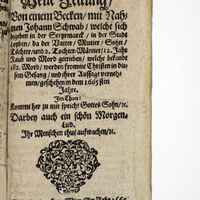 Newe Zeitung/
Von einem Becken/ mit Nah-
men Johann Schwab/ welche sich
haben in der Steyrmarck/ in der Stadt
Leyben/ da der Vatter/ Mutter/ Söhn/
Töchter/ und 2. Tochter-Männer/ 12. Jahr
Raub und Mord getrieben/ welche bekandt
182. Mord/ werden fromme Christen in die-
sem Gesang/ und ihrer Aussag vernem-
men/ geschehen in dem 1665sten
Jahre.
Im Thon:
Kommt her zu mir spricht Gottes Sohn/ ꝛc.
Darbey auch ein schön Morgen-
Lied.
Ihr Menschen thut auffwachen/ ꝛc.